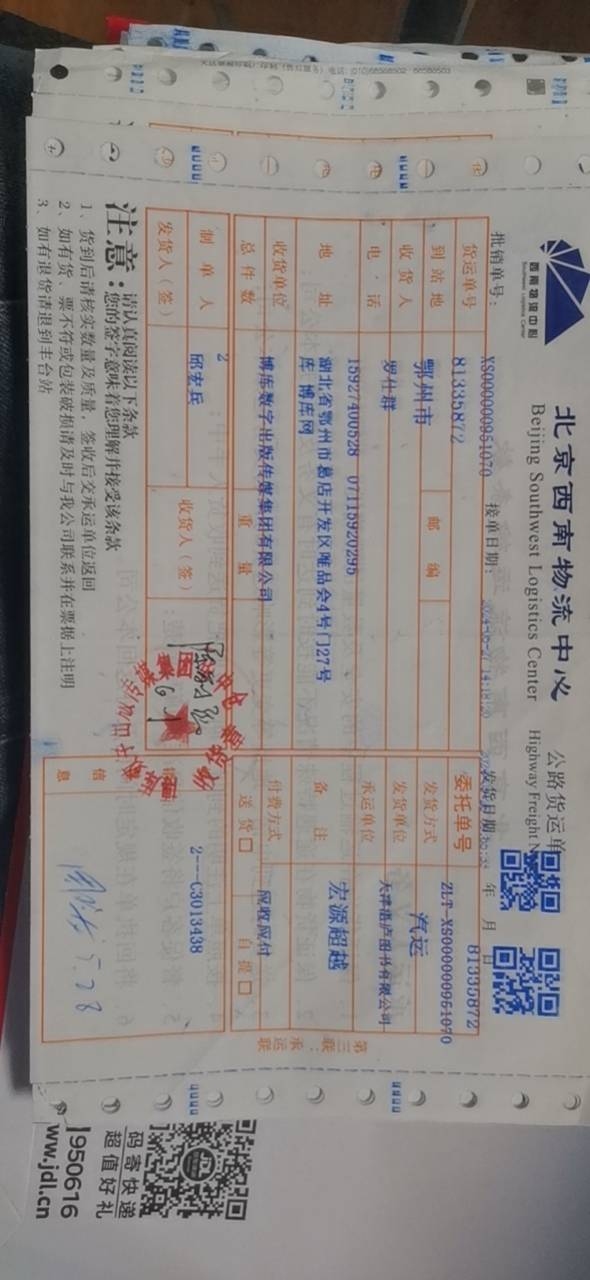 西南物流中心
Southwest Logistics Center
北京西南物流中心
Beijing Southwest Logistics Center
公路货运单
Highway Freight
81335872
批销单号：
XS000000951070
接单日期：
发货日期
年 月 日
货运单号
81335872
委托单号
ZLT-XS000000951070
到站地
鄂州市
邮编
发货方式
汽运
收货人
罗仕群
发货单位
天津湛庐图书有限公司
电话
15927400528 07115920295
承运单位
宏源超越
地址
湖北省鄂州市葛店开发区唯品会4号门27号
库 博库网
备注
收货单位
博库数字出版传媒集团有限公司
付费方式
应收应付
总件数
2
重量
送货□
自提□
制单人
邱宏兵
收货人（签）
2---C3013438
发货人（签）
信息
5.28
第三联：承运联
注意：
请认真阅读以下条款
您的签字意味着您理解并接受该条款
1、货到后请核实数量及质量，签收后交承运单位返回
2、如有货、票不符或包装破损请及时与我公司联系并在票据上注明
3、如有退货请退到丰台站
码寄快递
超值好礼
950616
www.jdl.cn